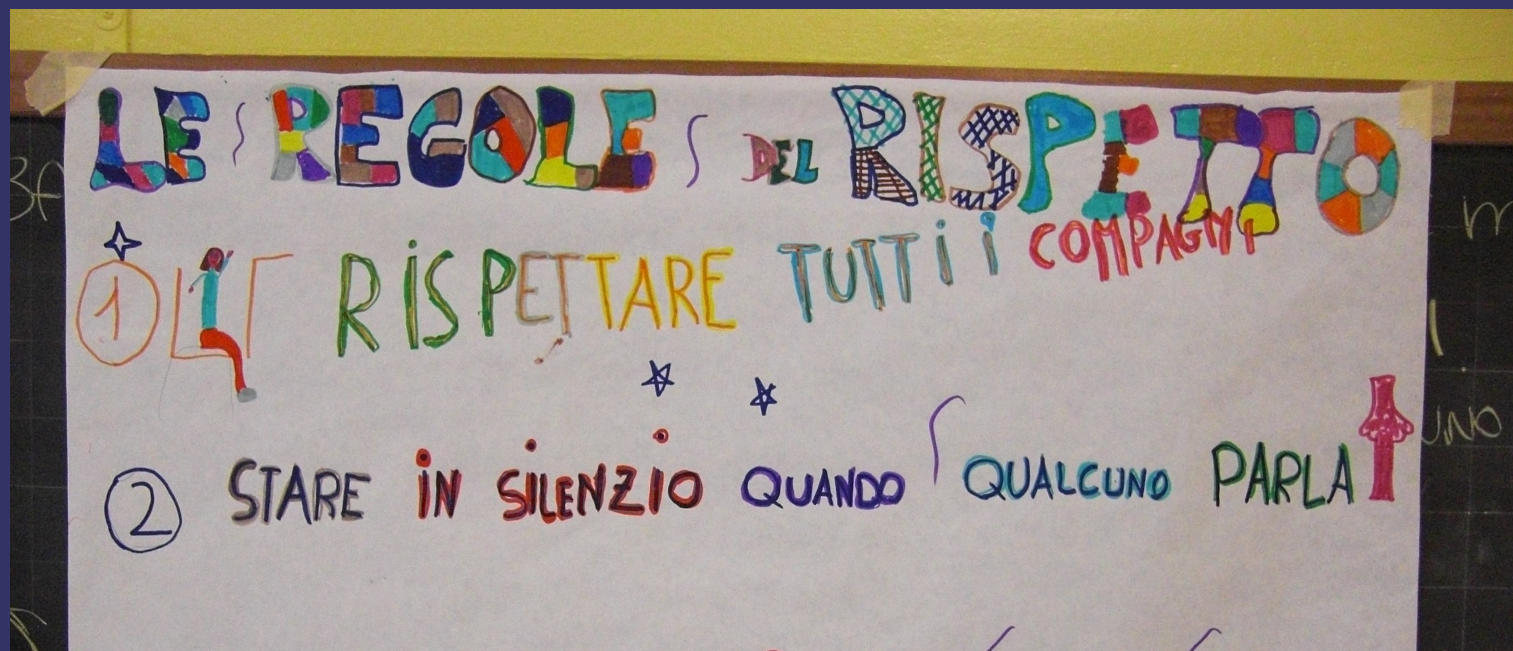 LE REGOLE DEL RISPETTO
1 RiSPETTARE TUTTi i COMPAGNI
2 STARE iN SiLENZiO QUANDO QUALCUNO PARLA
UNO